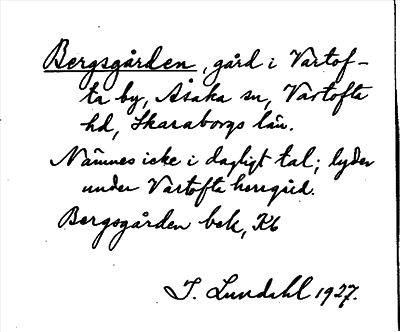 Bergsgården, gård i Vartof-
ta by, Åsaka sn, Vartofta
hd, Skaraborgs län.
Nämnes icke i dagligt tal; lyder
under Vartofta herrgård.
Bergsgården bek, K6
I. Lundahl 1927.